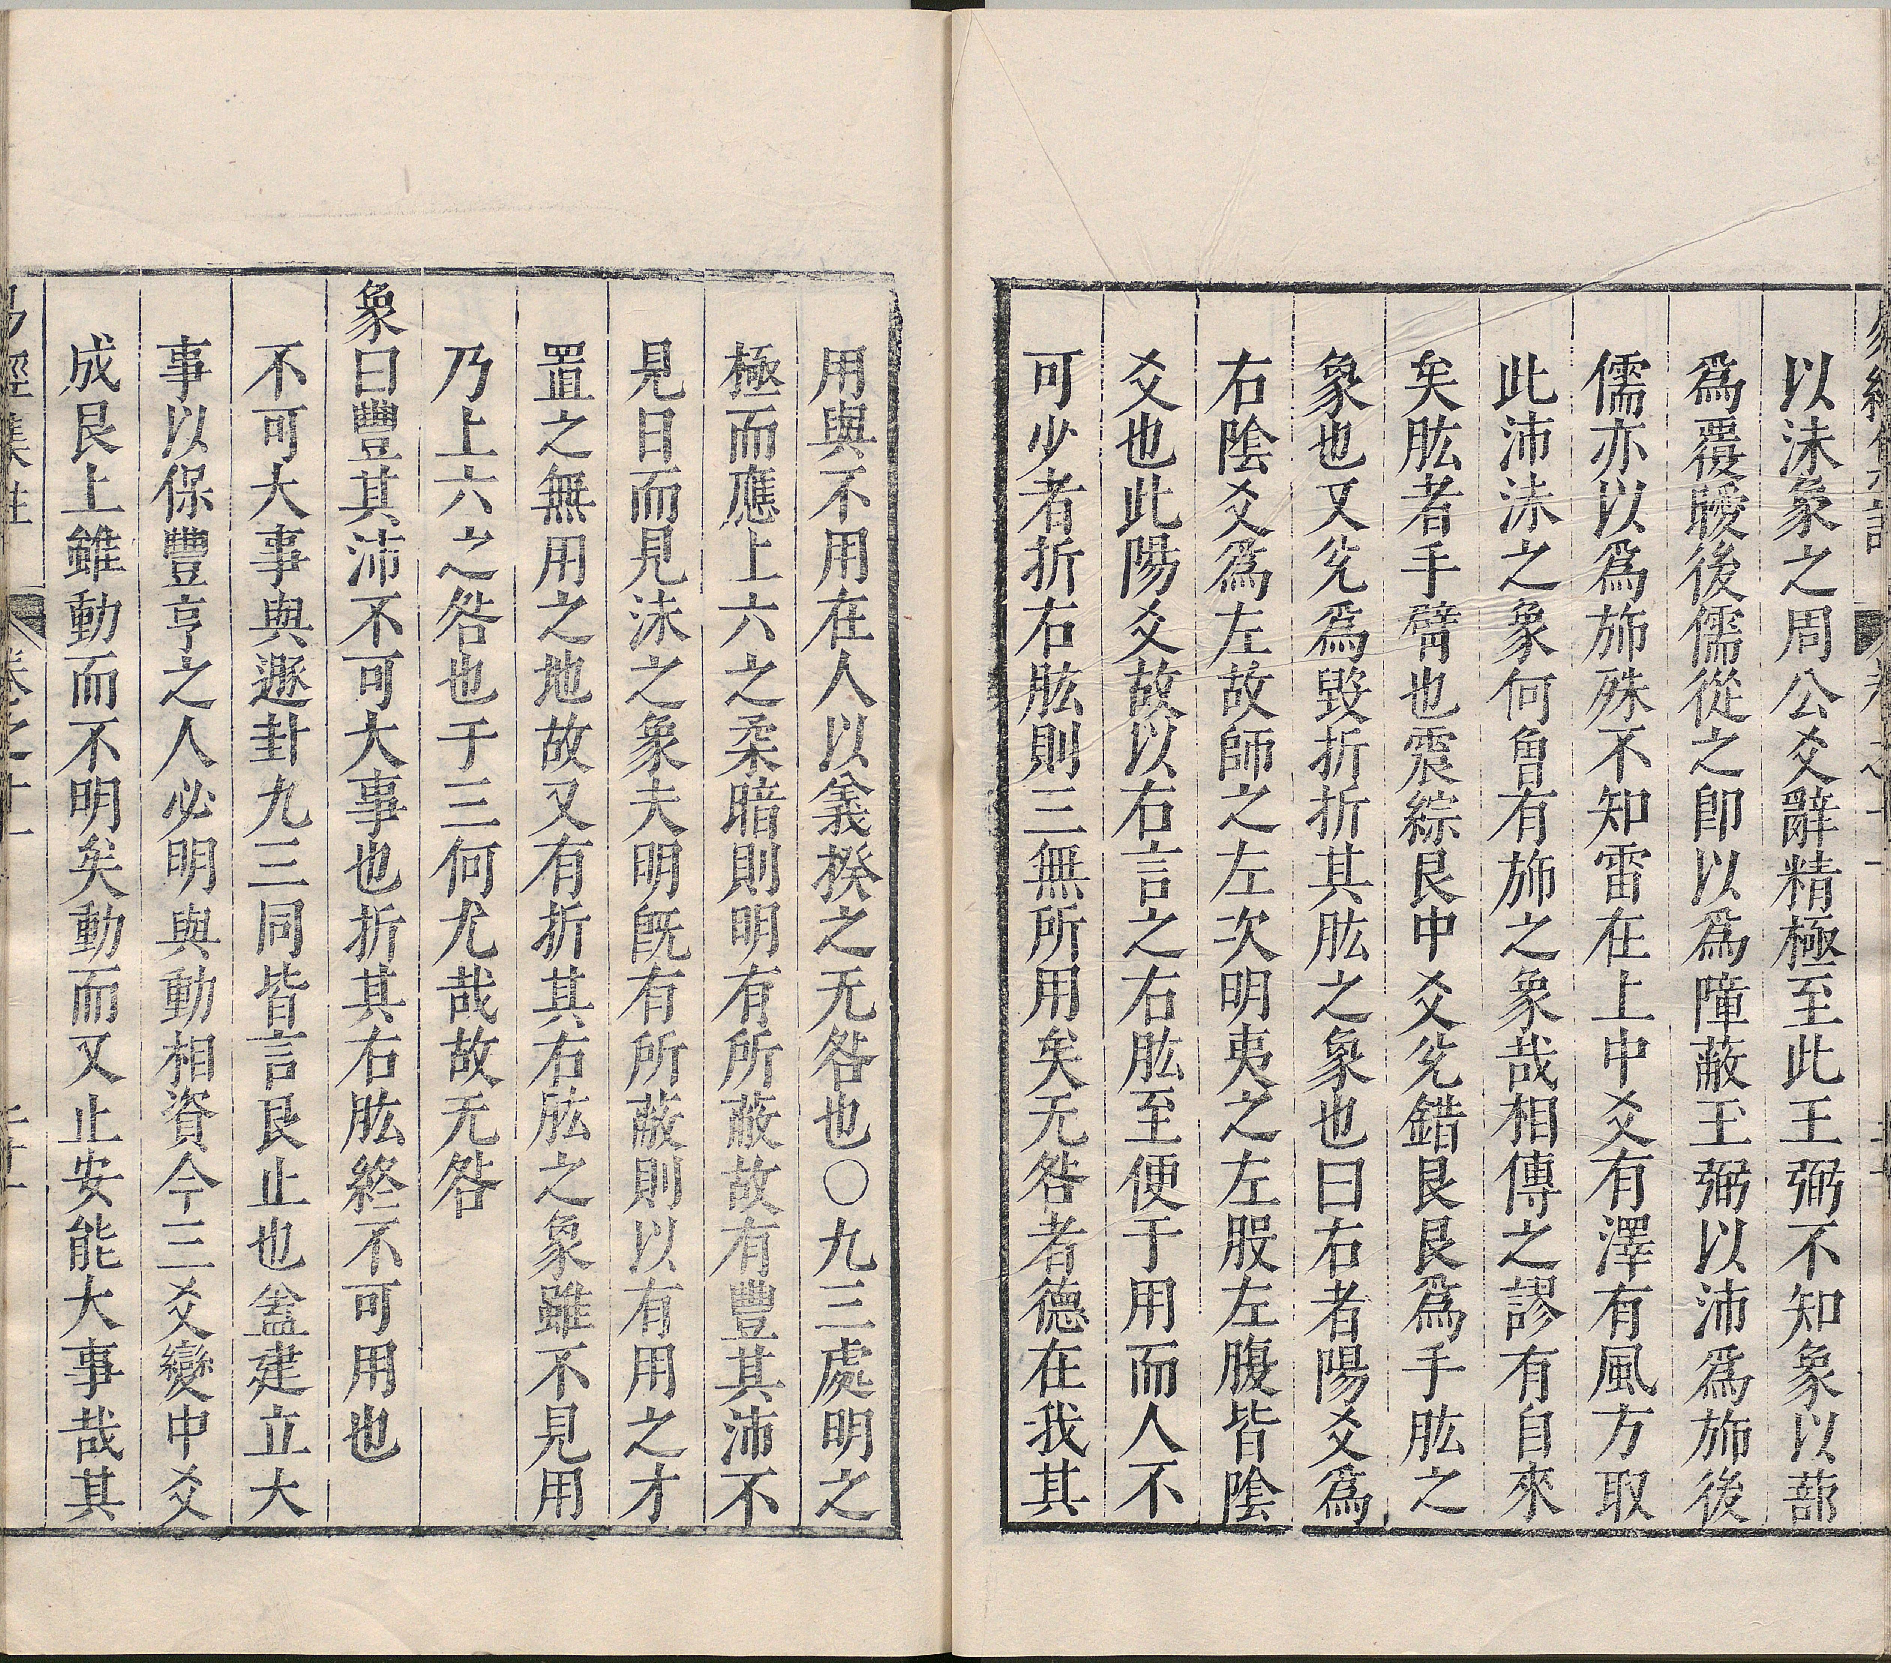 以沬象之周公爻辭精極至此王弼不知象以蔀
爲覆曖後儒從之即以爲障蔽王弼以沛爲斾後
儒亦以爲斾殊不知雷在上中爻有澤有風方取
此沛沬之象何曾有斾之象哉相傳之謬有自來
矣肱者手臂也震綜艮中爻兌錯艮艮爲手肱之
象也又兌爲毀折折其肱之象也曰右者陽爻爲
右陰爻爲左故師之左次明夷之左股左腹皆陰
爻也此陽爻故以右言之右肱至便于用而人不
可少者折右肱則三無所用矣无咎者德在我其
用與不用在人以義揆之无咎也○九三處明之
極而應上六之柔暗則明有所蔽故有豐其沛不
見日而見沬之象夫明既有所蔽則以有用之才
置之無用之地故又有折其右肱之象雖不見用
乃上六之咎也于三何尤哉故无咎
象曰豐其沛不可大事也折其右肱終不可用也
不可大事與遯卦九三同皆言艮止也盖建立大
事以保豐亨之人必明與動相資今三爻變中爻
成艮上雖動而不明矣動而又止安能大事哉其
易經集註
卷之十一